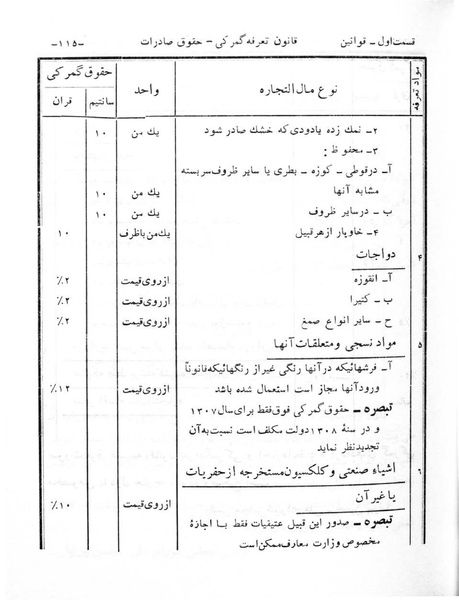 قسمت اول ـ قوانین قانون تعرفه گمرکی ـ حقوق صادرات ـ۱۱۵ـ
مواد تعرفه نوع مال التجاره واحد حقوق گمرکی
سانتیم قران
۲ـ نمك زده یادودی که خشك صادر شود یك من ۱۰
۳ـ محفوظ :
آـ درقوطی ـ کوزه ـ بطری یا سایر ظروف سربسته
مشابه آنها یك من ۱۰
ب ـ درسایر ظروف یك من ۱۰
۴ـ خاویار ازهرقبیل یك من باظرف ۱۰
۴ دواجات
آـ انقوزه ازروی قیمت ۲٪
ب ـ کتیرا ازروی قیمت ۲٪
ح ـ سایر انواع صمغ ازروی قیمت ۲٪
۵ مواد نسجی ومتعلقات آنها
آـ فرشهائیکه درآنها رنگی غیراز رنگهائیکه قانوناً
ورودآنها مجاز است استعمال شده باشد ازروی قیمت ۱۲٪
تبصره ـ حقوق گمرکی فوق فقط برای سال ۱۳۰۷
و در سنهٔ ۱۳۰۸ دولت مکلف است نسبت به آن
تجدیدنظر نماید
۶ اشیاء صنعتی و کلکسیون مستخرجه ازحفریات
یا غیرآن ازروی قیمت ۱۰٪
تبصره ـ صدور این قبیل عتیقیات فقط بـا اجازهٔ
مخصوص وزارت معارف ممکن است